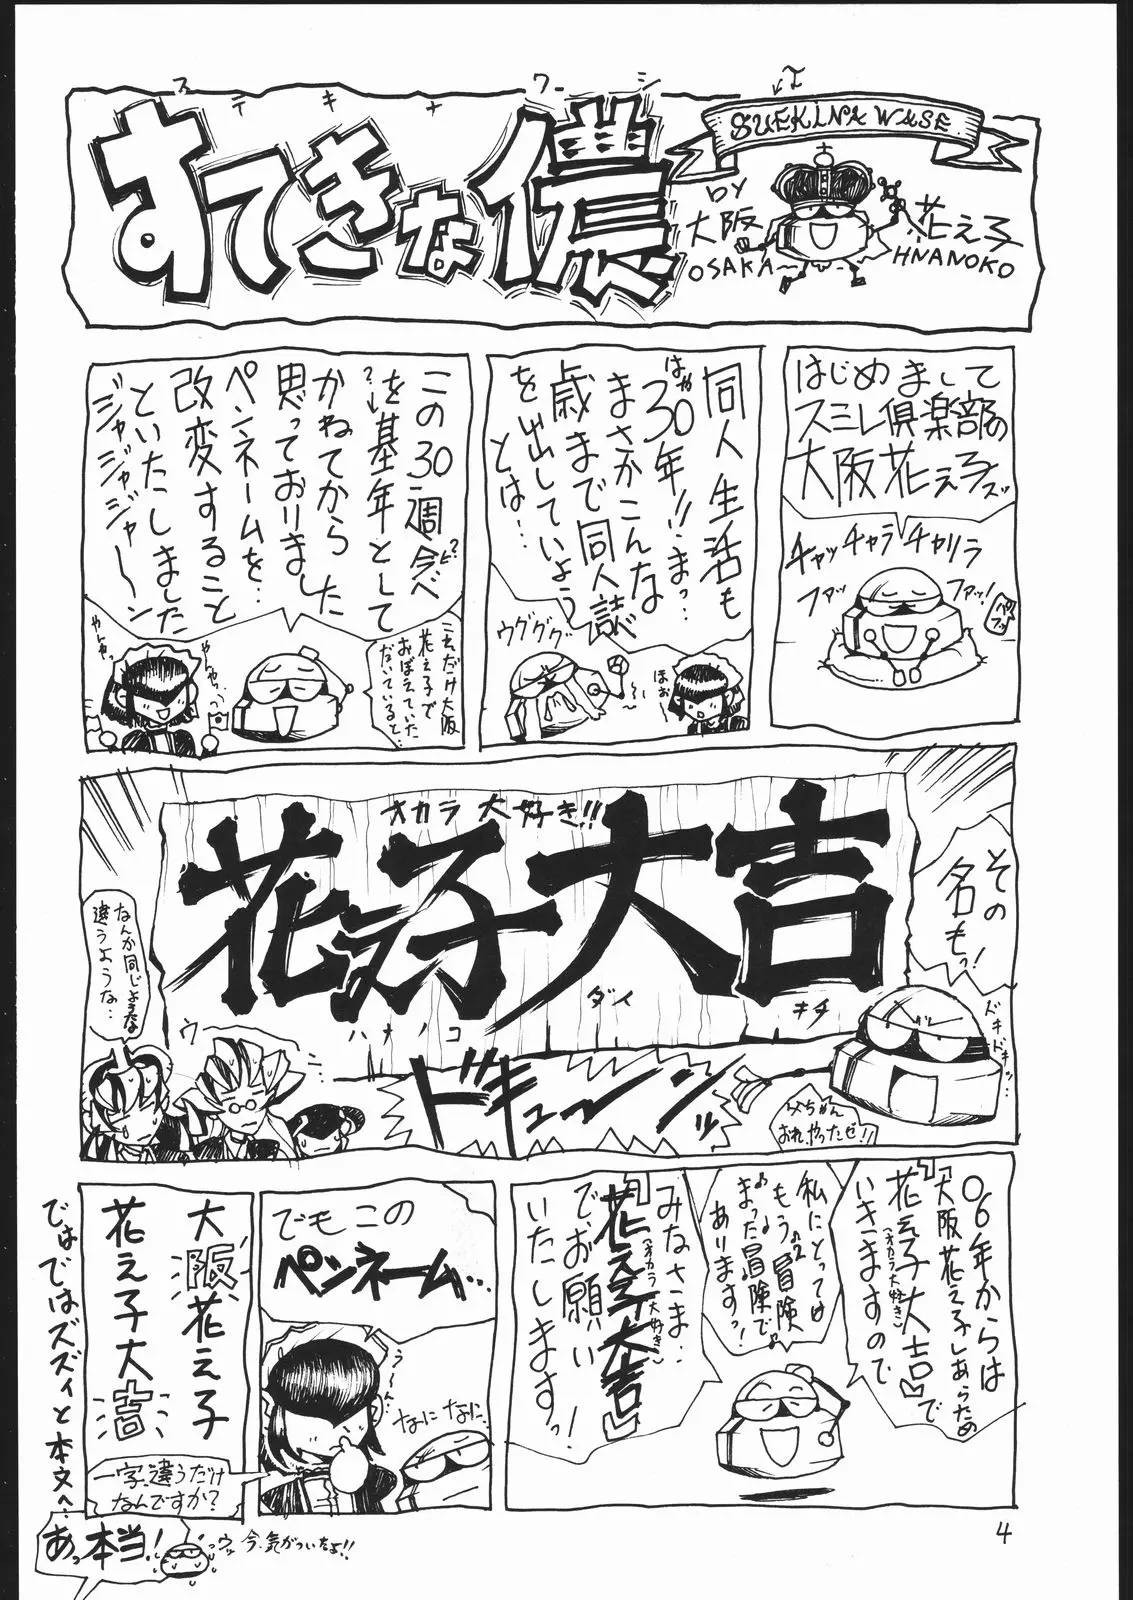 ステキナワーシ
すてきな儂
SUEKINA WASE
BY
大阪 花え子
OSAKA HNANOKO
はじめまして
スミレ倶楽部の
大阪花え子ズ
チャッチャラチャリラ
ファッ
ファッ!
同人生活も
はや
30年!!まっ…
まさかこんな
歳まで同人誌
を出していよう
とは…
ウグググ
ほぉ
この30週今べ
を基年として
かねてから
思っておりました
ペンネームを…
改変すること
といたしました
ジャジャジャジャ〜ン
これだけ大阪
花え子で
おぼえていた
だいていると…
やんやっ
やんやっ
その
名もっ!
オカラ大好き!!
花え子大吉
ハナノコ ダイ キチ
ドキューーンッ
ドキドキッ…
父ちゃん
おれ、やったぜ!!
なんか同じような
違うような…
ウ
ニ…
06年からは
『大阪花え子』あらため
『花え子大吉』で
(オカラ大好き)
いきますので
私にとっては
もう冒険
まった冒険で
あります
っ!
みなさま…
『花え子大吉』
(オカラ大好き)
でお願い
いたしますっ!
でもこの
ペンネーム…
うーん
なになに
大阪花え子
花え子大吉
一字、違うだけ
なんですか?
ではではズズィと本文へ…
あっ本当!
ウッ 今、気がついたよ!!
4